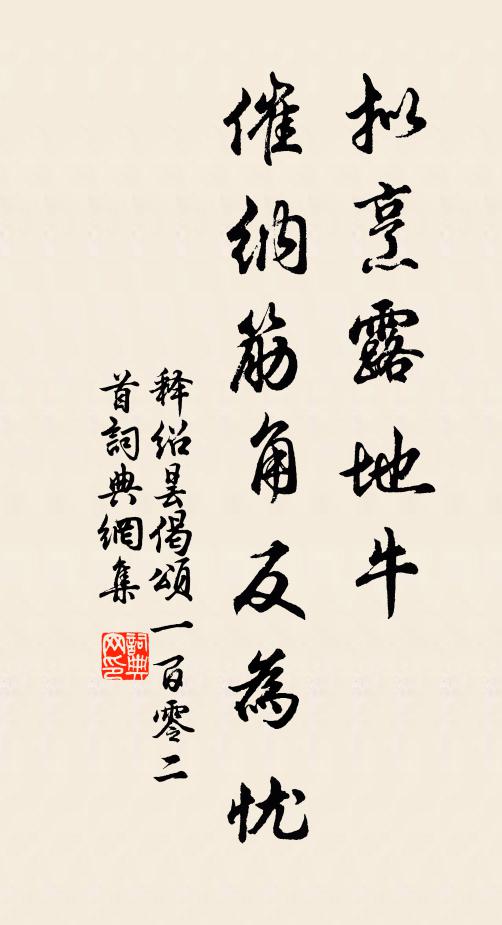 拟烹露地牛
催纳筋角反為忧
释绍昙偈頌一百零二
首詞典網集
詞典網印